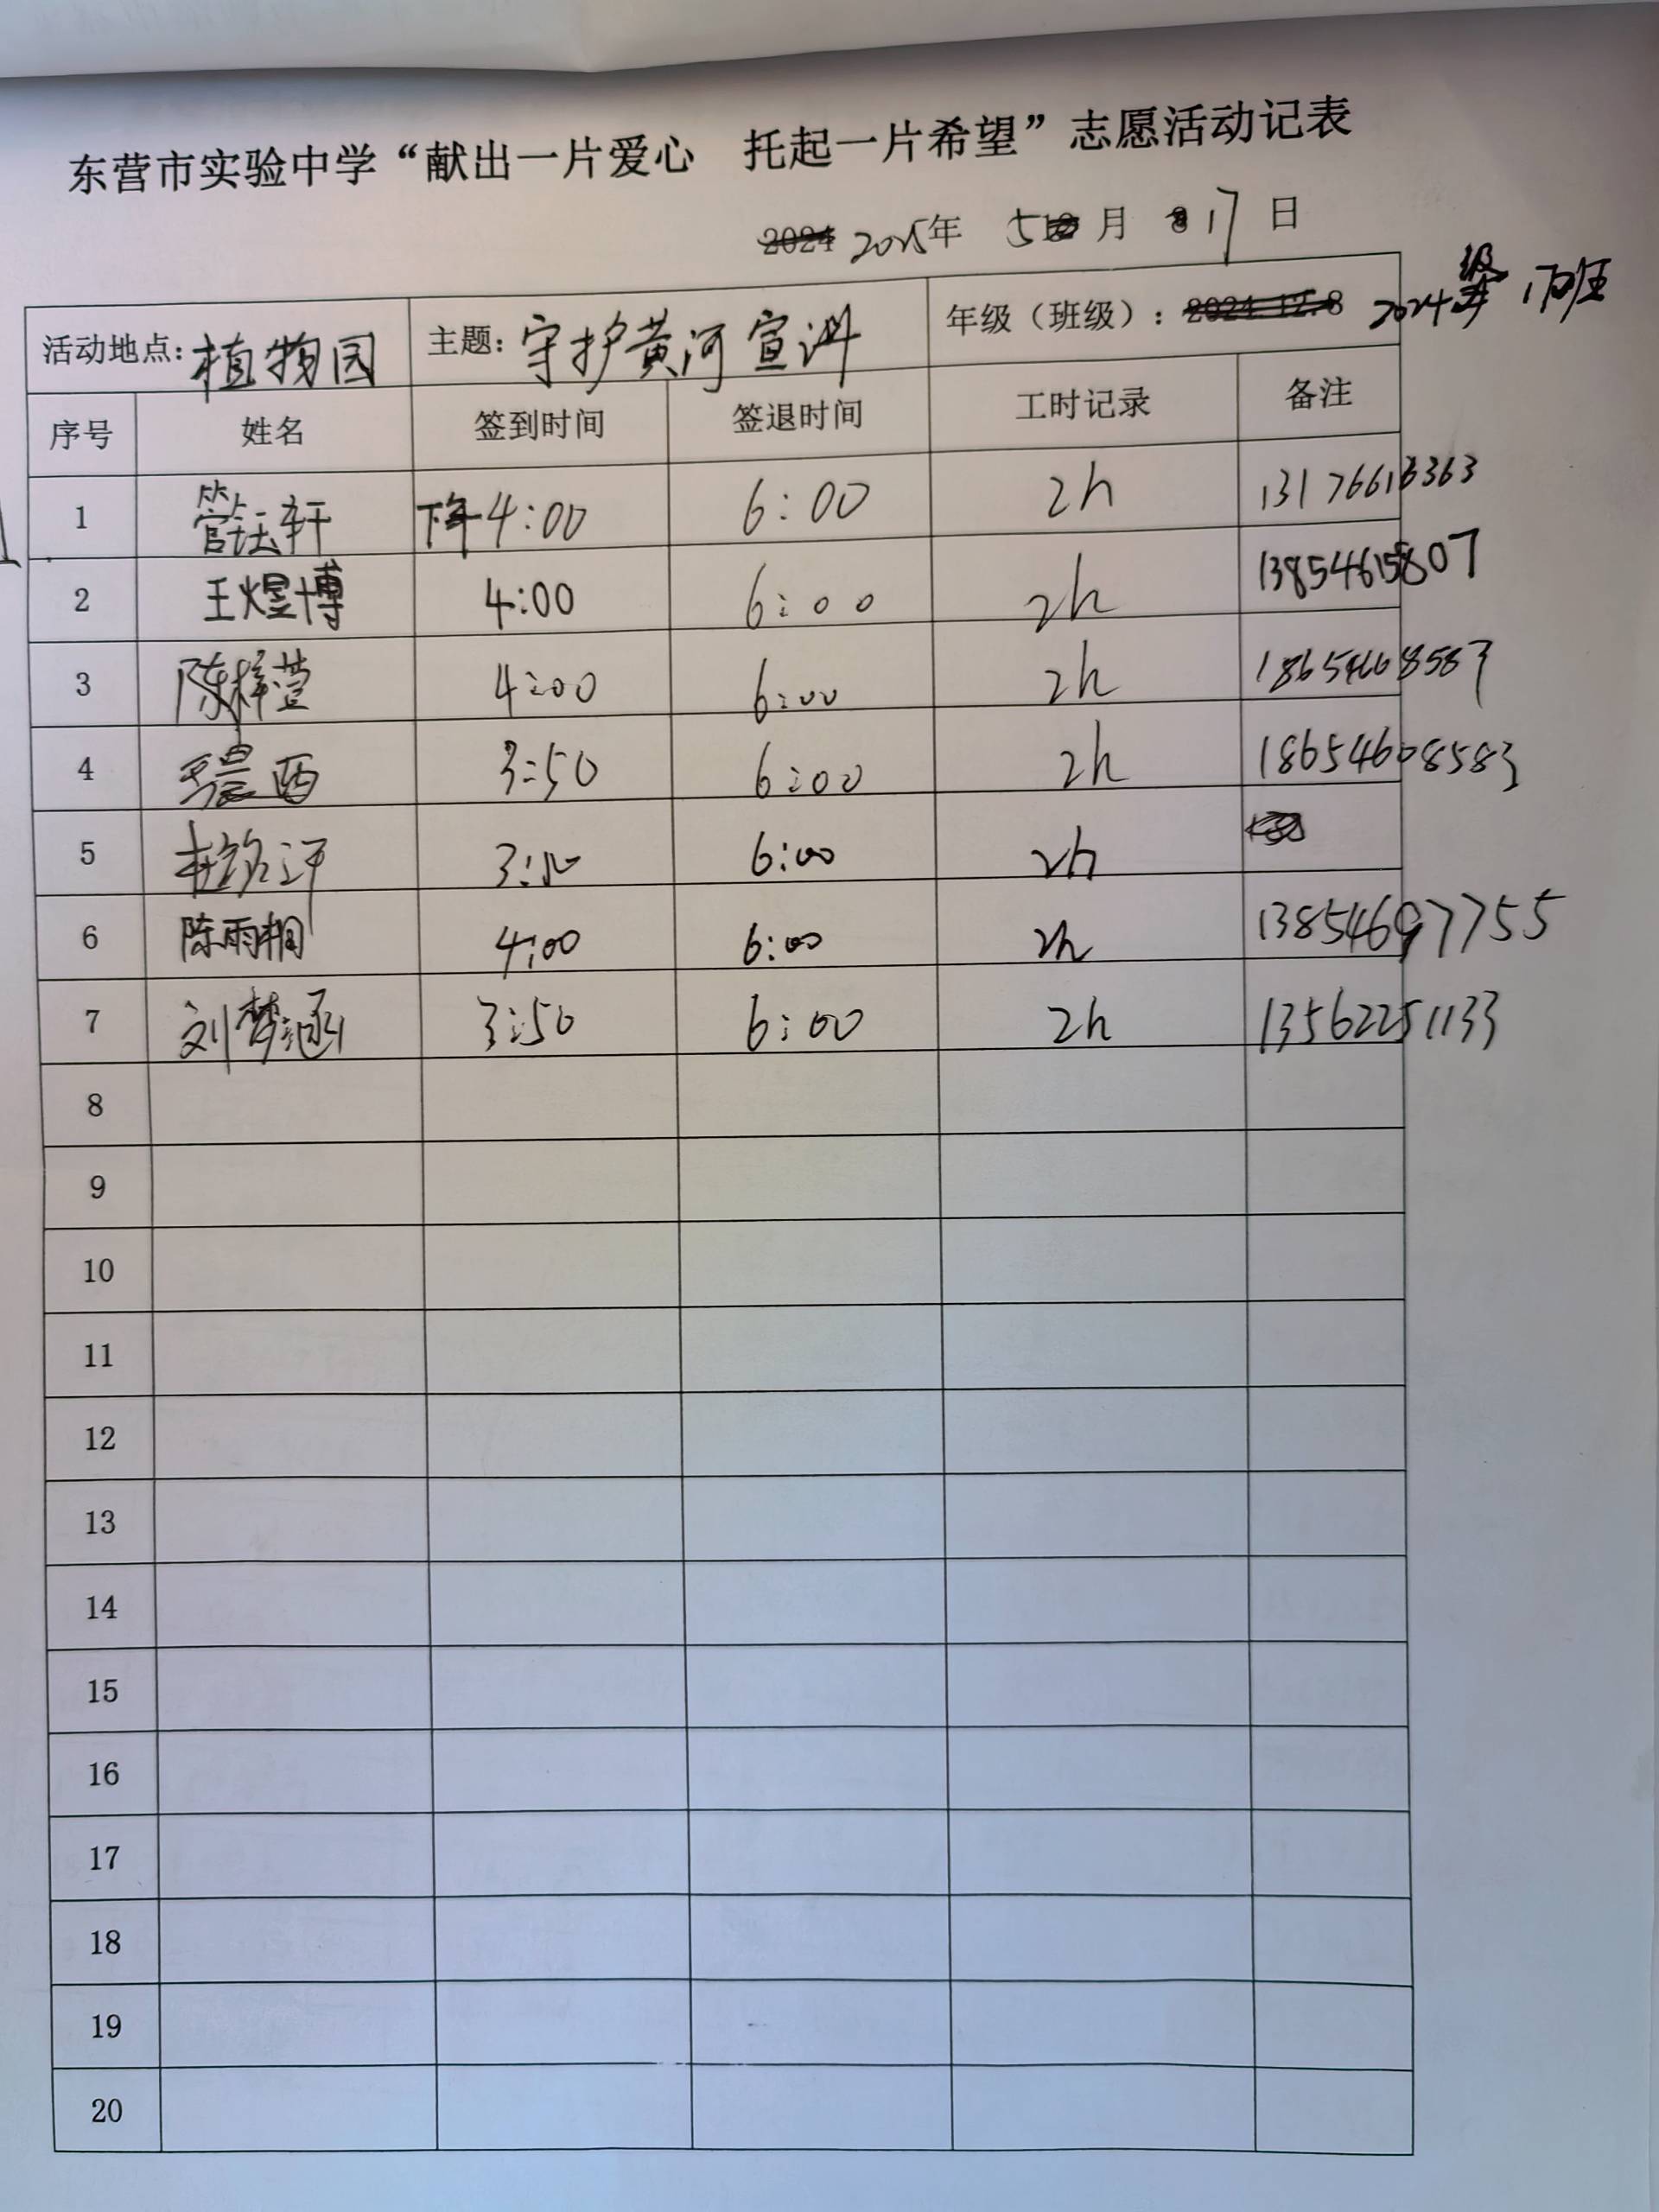 东营市实验中学“献出一片爱心 托起一片希望”志愿活动记表
2024 2025年 5 月 17 日
活动地点: 植物园 主题: 守护黄河宣讲 年级（班级）: 2024.12.8 2024级 17班
序号 姓名 签到时间 签退时间 工时记录 备注
1 管钰轩 下午4:00 6:00 2h 13176613363
2 王煜博 4:00 6:00 2h 13854615807
3 陈梓萱 4:00 6:00 2h 18654608583
4 3:50 6:00 2h 18654608583
5 3:50 6:00 2h
6 陈雨桐 4:00 6:00 2h 13854697755
7 刘梦涵 3:50 6:00 2h 13562251133
8
9
10
11
12
13
14
15
16
17
18
19
20